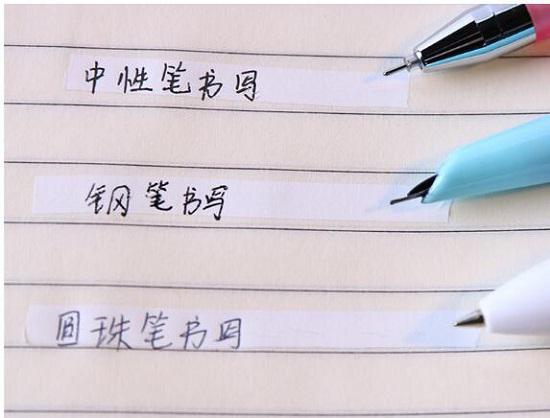 中性笔书写
钢笔书写
圆珠笔书写